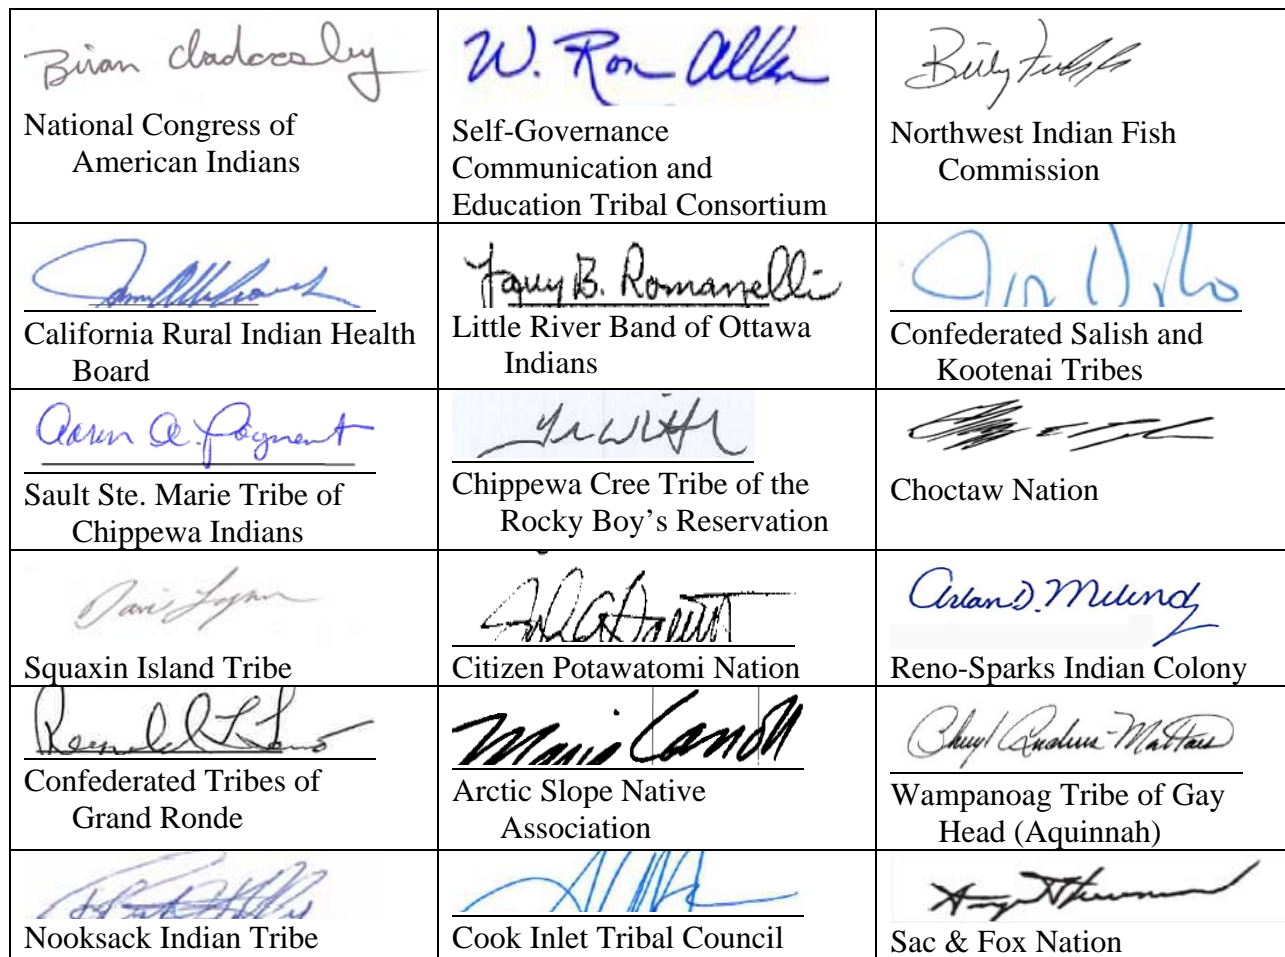 Brian Cladoosby
National Congress of
American Indians
W. Ron Allen
Self-Governance
Communication and
Education Tribal Consortium
Billy
Northwest Indian Fish
Commission
California Rural Indian Health
Board
B. Romanelli
Little River Band of Ottawa
Indians
Confederated Salish and
Kootenai Tribes
Aaron A. Payment
Sault Ste. Marie Tribe of
Chippewa Indians
Chippewa Cree Tribe of the
Rocky Boy’s Reservation
Choctaw Nation
Squaxin Island Tribe
Citizen Potawatomi Nation
Arlan D.
Reno-Sparks Indian Colony
Confederated Tribes of
Grand Ronde
Arctic Slope Native
Association
Wampanoag Tribe of Gay
Head (Aquinnah)
Nooksack Indian Tribe
Cook Inlet Tribal Council
Sac & Fox Nation